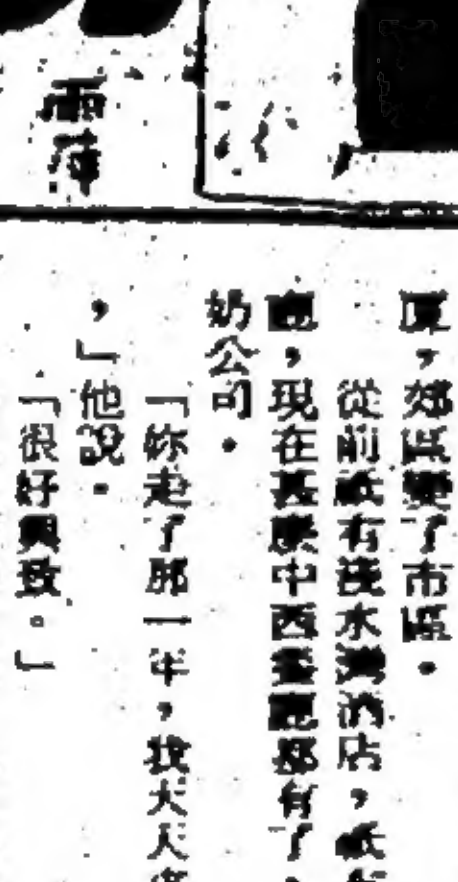 雨陣
厦，郊區變了市區．
從前祇有淺水灣酒店，祇有
廳，現在甚麽中西餐廳都有了，
奶公司．
「妳走了那一年，我天天
，」他說．
「很好興致。」